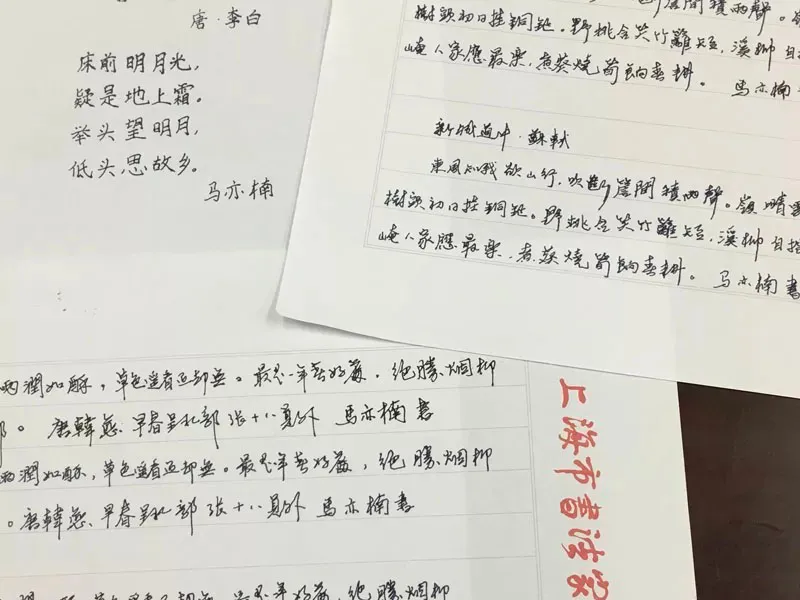 唐·李白
床前明月光，
疑是地上霜。
举头望明月，
低头思故乡。
马亦楠
簷間積雨聲。
樹頭初日挂銅鉦。野桃含笑竹籬短，溪柳自
人家應最樂，煮葵燒筍餉春耕。 马亦楠
新城道中·蘇軾
東風知我欲山行，吹斷簷間積雨聲。嶺晴雲
樹頭初日挂銅鉦。野桃含笑竹籬短，溪柳自搖
崦人家應最樂，煮葵燒筍餉春耕。 马亦楠書
雨潤如酥，草色遙看近却無。最是一年春好處，絕勝烟柳
。 唐韓愈 早春呈水部張十八員外 馬亦楠書
雨潤如酥，草色遙看近却無。最是一年春好處，絕勝烟柳
。唐韓愈 早春呈水部張十八員外 馬亦楠書
年春好處，絕勝烟柳
上海市書法家